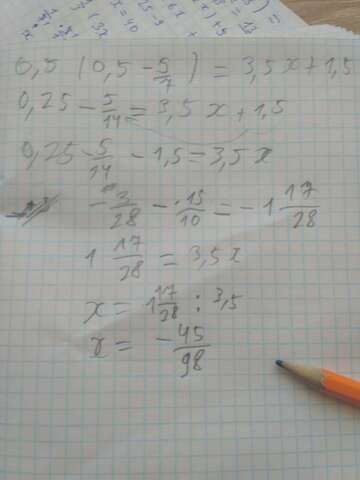 0,5 (0,5 - 5/7) = 3,5x + 1,5
0,25 - 5/14 = 3,5x + 1,5
0,25 - 5/14 - 1,5 = 3,5x
- 3/28 - 15/10 = - 1 17/28
1 17/28 = 3,5x
x = 1 17/28 : 3,5
x = - 45/98